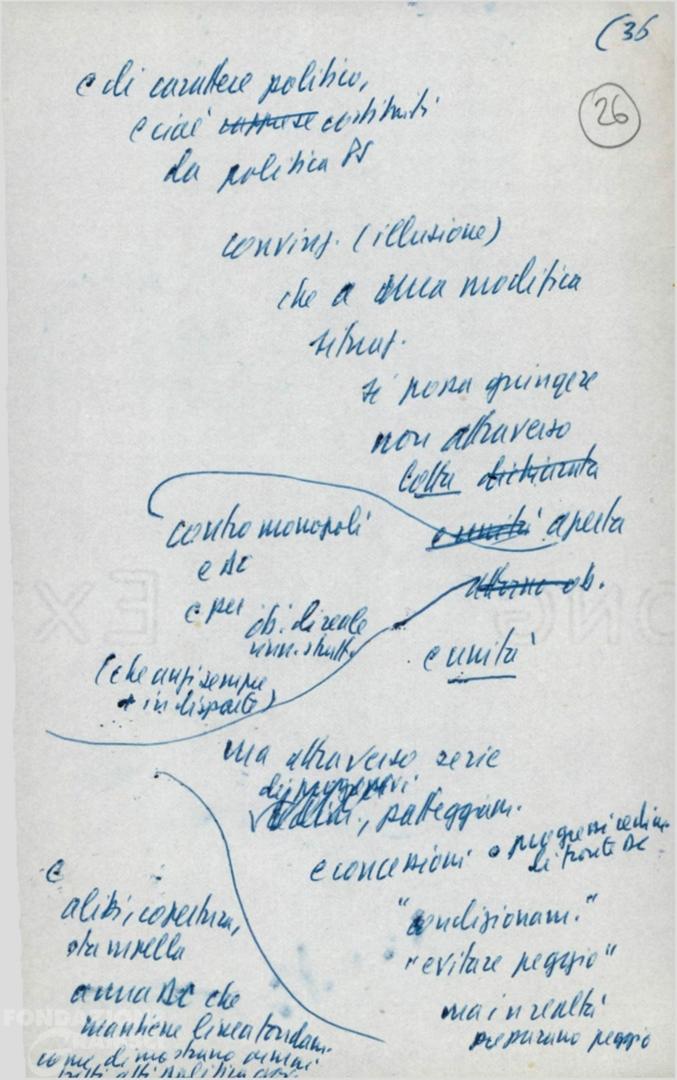 (36
26
e di carattere politico,
e cioè costituiti
da politica PS
convinz. (illusione)
che a una modifica
situaz.
si possa giungere
non attraverso
lotta dichiarata
e unità aperta
attorno ob.
e unità
contro monopoli
e DC
e per ob. di reale
rinn. strutt.
(che anzi sempre
+ in disparte)
ma attraverso serie
di progressivi
cedim., patteggiam.
e concessioni e progressivi cedim.
di fronte DC
"condizionam."
"evitare peggio"
ma in realtà
preparano peggio
e
alibi, copertura,
stampella
a una DC che
mantiene linea fondam.
come dimostrano ormai
tutti atti politica gov.
FONDAZIONE
GRAMSCI